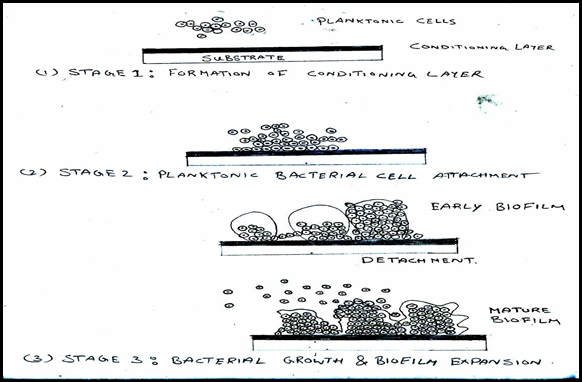 PLANKTONIC CELLS
CONDITIONING LAYER
SUBSTRATE
(1) STAGE 1: FORMATION OF CONDITIONING LAYER
(2) STAGE 2: PLANKTONIC BACTERIAL CELL ATTACHMENT
EARLY BIOFILM
DETACHMENT.
MATURE
BIOFILM
(3) STAGE 3: BACTERIAL GROWTH & BIOFILM EXPANSION.